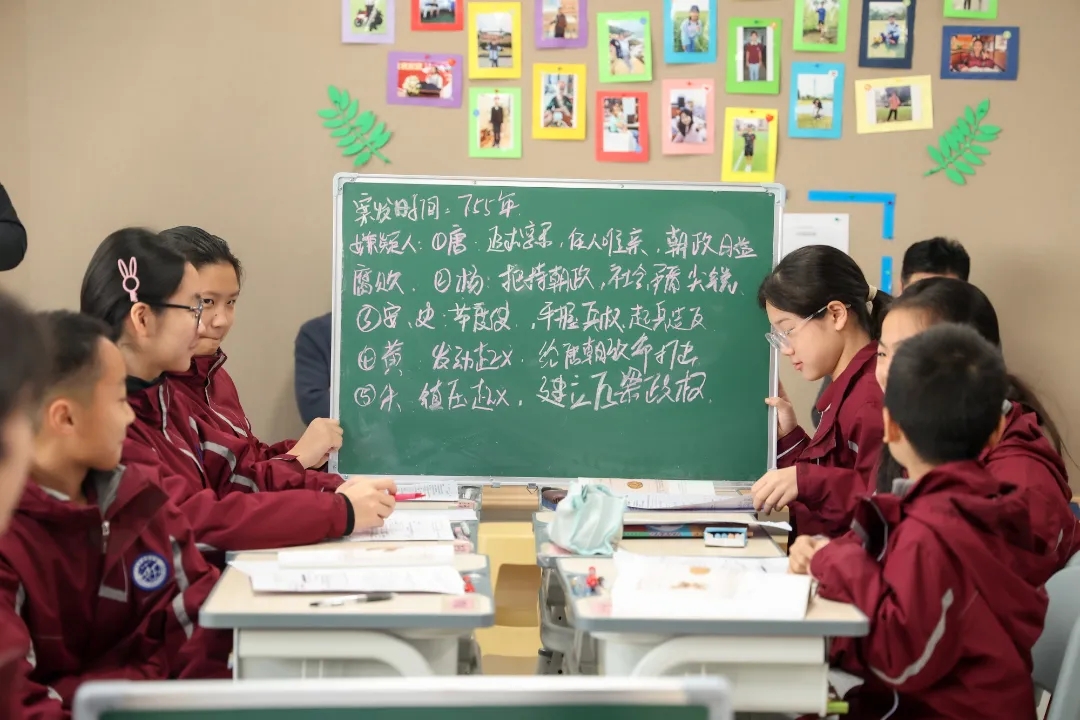 案发时间：755年
嫌疑人：①唐：追求享乐，任人唯亲，朝政日益
腐败。②杨：把持朝政，社会矛盾尖锐。
③安、史：节度使，手握兵权，起兵造反
④黄：发动起义，给唐朝致命打击
⑤朱：镇压起义，建立后梁政权.